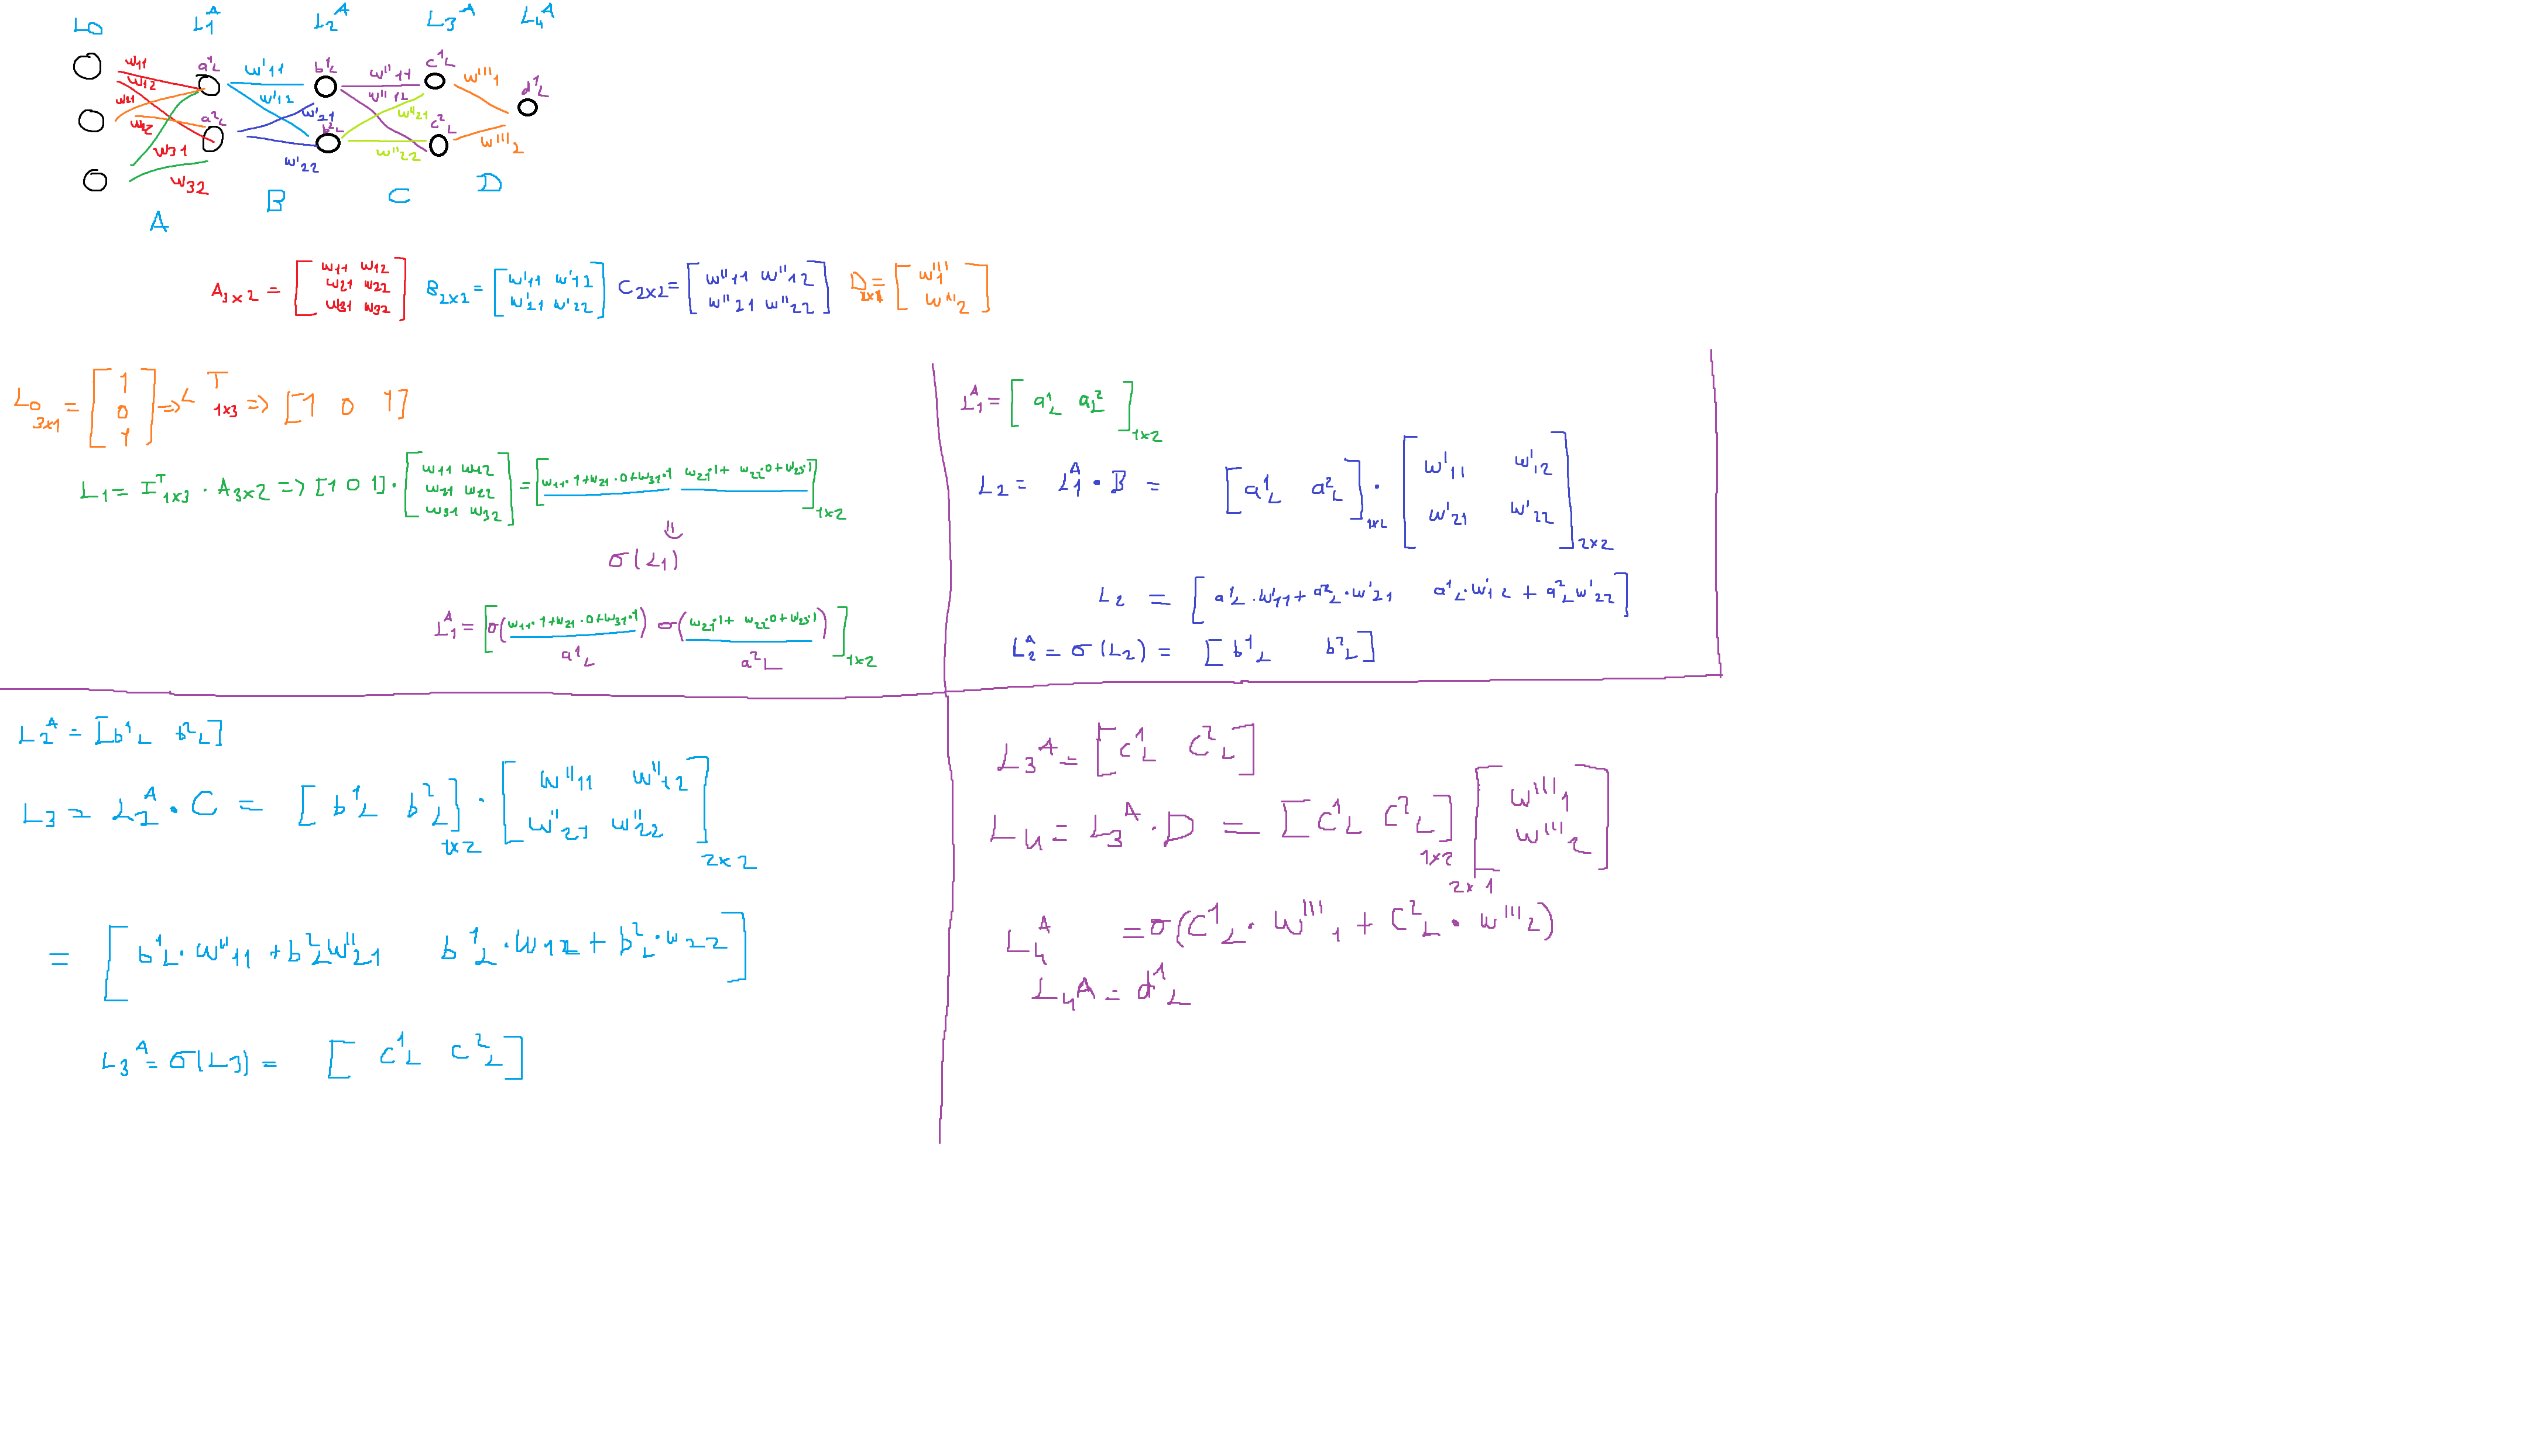 L0 L1^A L2^A L3^A L4^A
w11 a^1L w'11 b^1L w''11 c^1L w'''1 d^1L
w12 w'12 w''12
w21 a^2L w'21 b^2L w''21 c^2L
w12 w31 w'22 w''22 w'''2
w32
A B C D
A3x2 = [w11 w12 B2x2 = [w'11 w'12 C2x2 = [w''11 w''12 D2x1 = [w'''1
w21 w22 w'21 w'22] w''21 w''22] w'''2]
w31 w32]
L0 3x1 = [1 0 1] => L^T 1x3 => [1 0 1]
L1 = I^T 1x3 . A3x2 => [1 0 1] . [w11 w12 w21 w22 w31 w32] = [w11.1+w21.0+w31.1 w21.1+ w22.0+w23.1] 1x2
σ(L1)
L1^A = [σ(w11.1+w21.0+w31.1) σ(w21.1+ w22.0+w23.1)] 1x2
a^1L a^2L
L1^A = [a^1L a^2L] 1x2
L2 = L1^A . B = [a^1L a^2L] 1x2 . [w'11 w'12 w'21 w'22] 2x2
L2 = [a^1L.w'11+a^2L.w'21 a^1L.w'12+a^2L w'22]
L2^A = σ(L2) = [b^1L b^2L]
L2^A = [b^1L b^2L]
L3 = L2^A . C = [b^1L b^2L] 1x2 . [w''11 w''12 w''21 w''22] 2x2
= [b^1L.w''11+b^2L w''21 b^1L.w12+b^2L.w22]
L3^A = σ(L3) = [c^1L c^2L]
L3^A = [c^1L c^2L]
L4 = L3^A . D = [c^1L c^2L] 1x2 [w'''1 w'''2] 2x1
L4^A = σ(c^1L . w'''1 + c^2L . w'''2)
L4A = d^1L